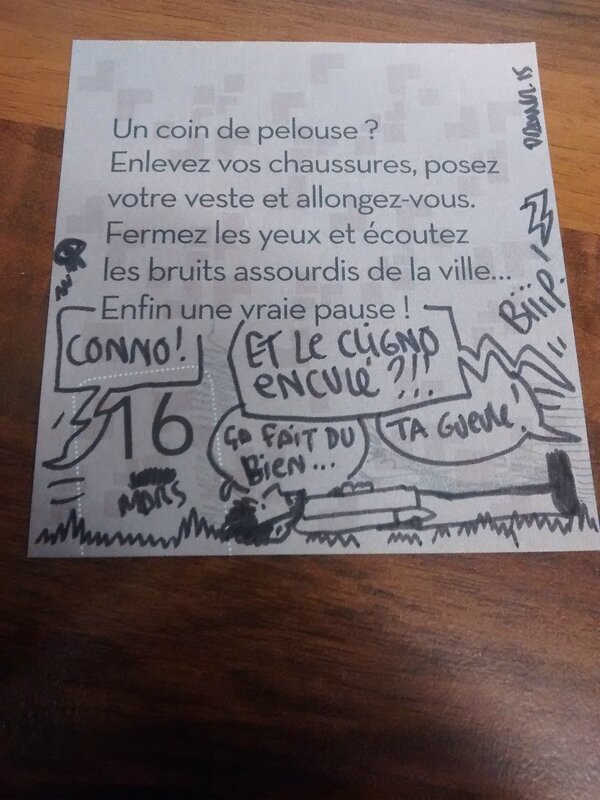 Un coin de pelouse ?
Enlevez vos chaussures, posez
votre veste et allongez-vous.
Fermez les yeux et écoutez
les bruits assourdis de la ville...
Enfin une vraie pause !
BiiiP.
CONNO!
ET LE CLIGNO
ENCULÉ ?!!
16
MARS
ÇA FAIT DU
BiEN...
TA GUEULE!